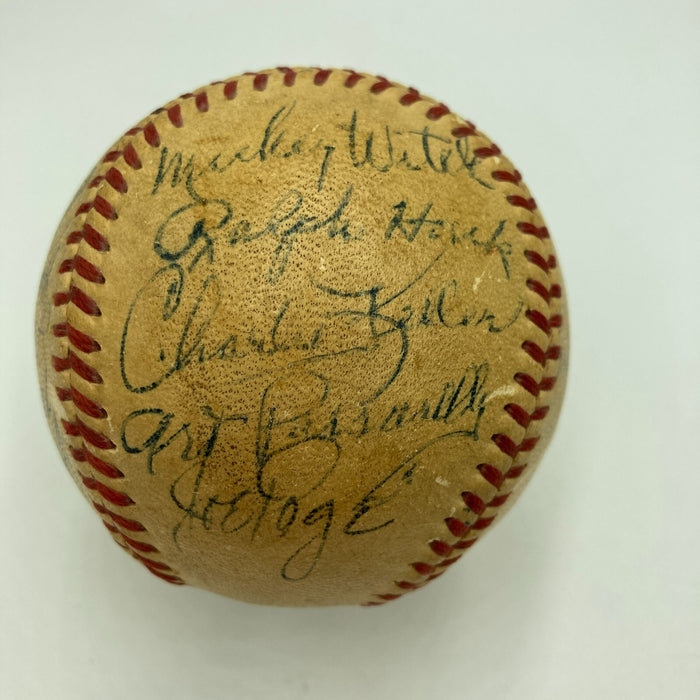 Mickey Witek
Ralph Houk
Charlie Keller
Art
Joe Page